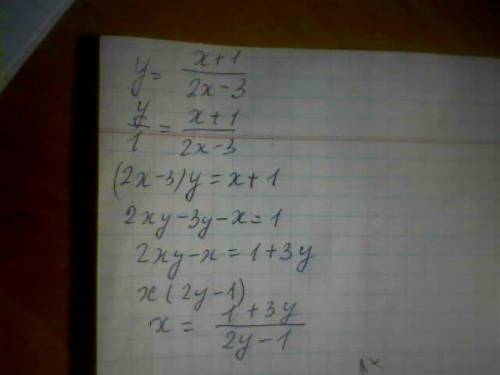 y = x+1 / 2x-3
y/1 = x+1 / 2x-3
(2x-3)y = x+1
2xy-3y-x=1
2xy-x=1+3y
x(2y-1)
x = 1+3y / 2y-1